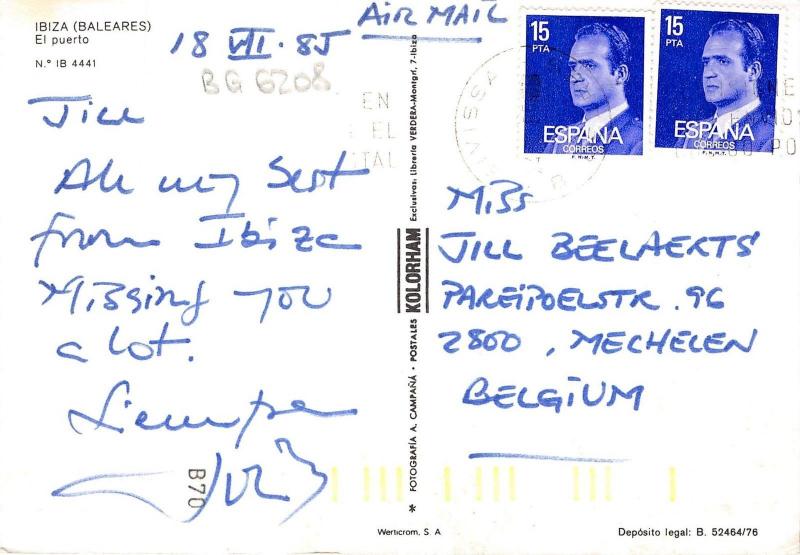 IBIZA (BALEARES)
El puerto
N.º IB 4441
18 VII · 85
BG 6208
AIR MAIL
Jill
All my best
from Ibiza
Missing you
a lot.
Siempre
B70
EN
EL
TAL
* FOTOGRAFÍA A. CAMPAÑÁ · POSTALES KOLORHAM Exclusivas: Librería VERDERA-Montgrí, 7-Ibiza
15
PTA
ESPAÑA
CORREOS
F.N.M.T.
15
PTA
ESPAÑA
CORREOS
F.N.M.T.
Miss
JILL BEELAERTS
PAREIPOELSTR. 96
2800, MECHELEN
BELGIUM
Werticrom, S. A.
Depósito legal: B. 52464/76